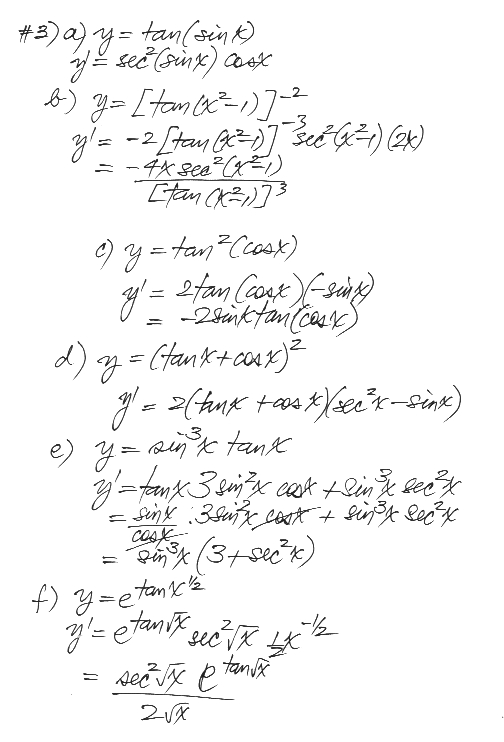 #3) a) y = tan(sin x)
y' = sec²(sin x) cos x
b) y = [tan(x²-1)]⁻²
y' = -2[tan(x²-1)]⁻³ sec²(x²-1)(2x)
= -4x sec²(x²-1)
[tan(x²-1)]³
c) y = tan²(cos x)
y' = 2tan(cos x)(-sin x)
= -2sin x tan(cos x)
d) y = (tan x + cos x)²
y' = 2(tan x + cos x)(sec²x - sin x)
e) y = sin³x tan x
y' = tan x 3 sin²x cos x + sin³x sec²x
= sin x · 3 sin²x cos x + sin³x sec²x
cos x
= sin³x (3 + sec²x)
f) y = e^tan x^½
y' = e^tan√x sec²√x ½x^-½
= sec²√x e^tan√x
2√x